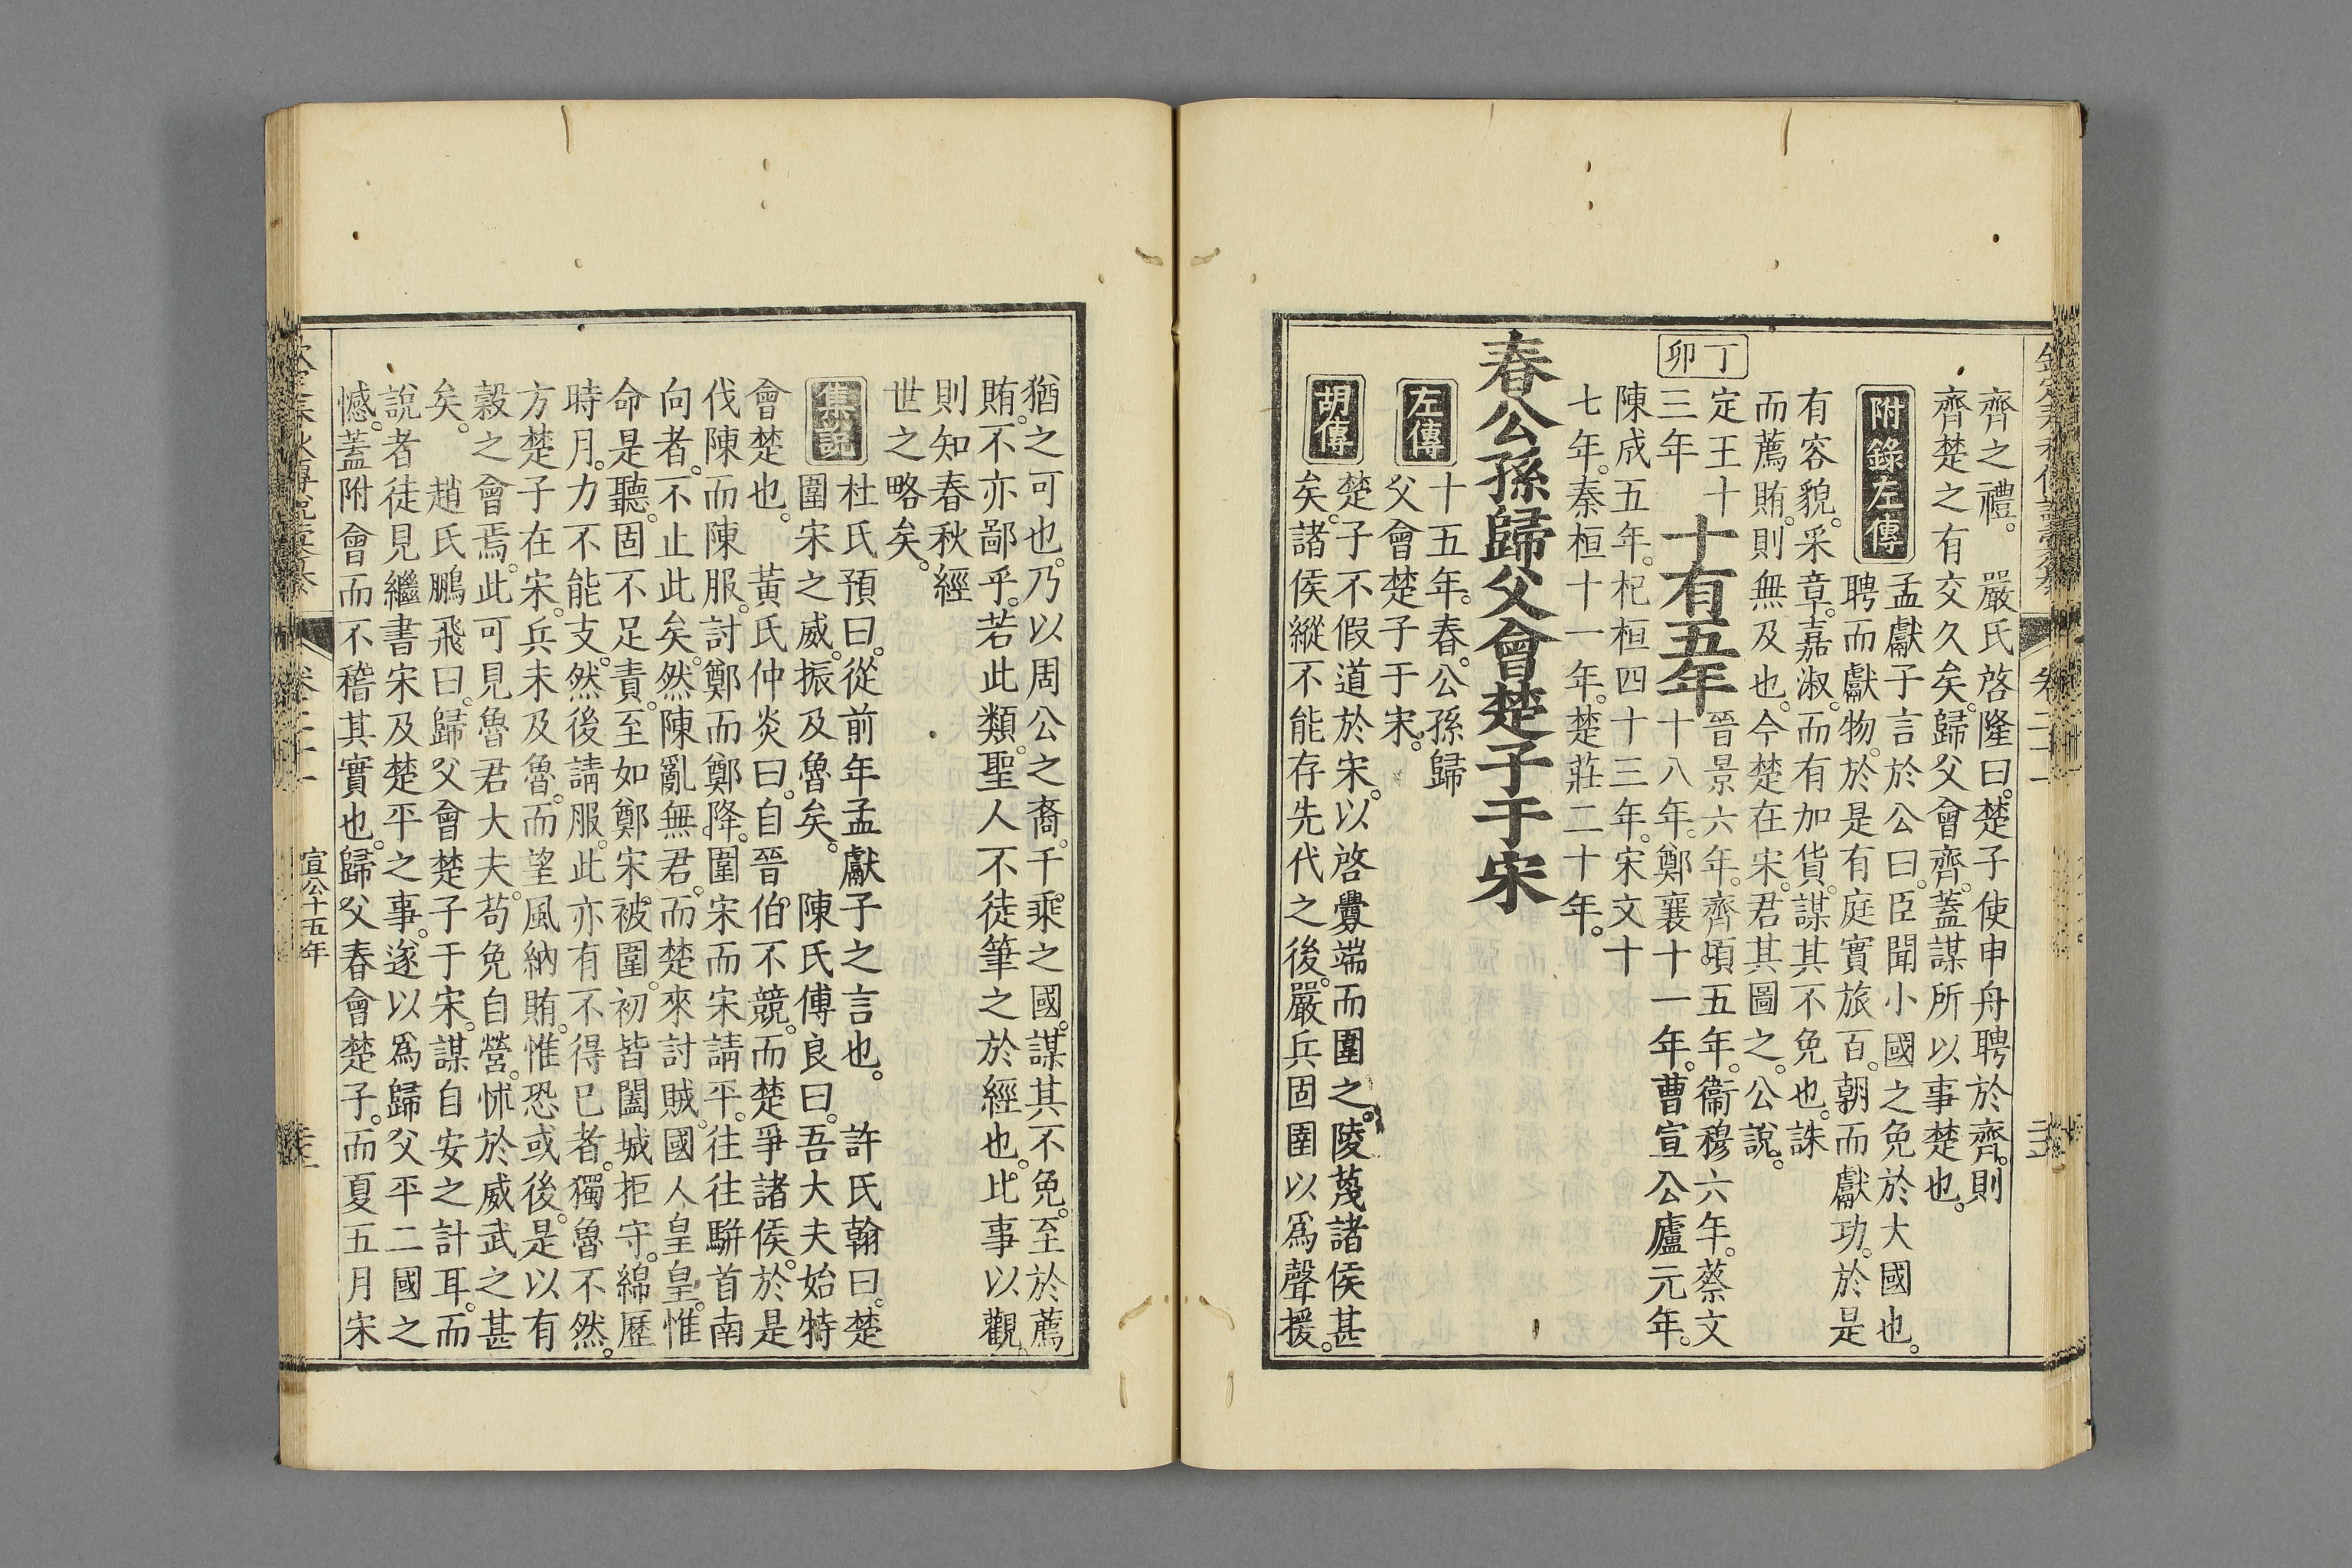 欽定春秋傳說彙纂 卷二十一
齊之禮。 嚴氏啓隆曰。楚子使申舟聘於齊。則
齊楚之有交久矣。歸父會齊。蓋謀所以事楚也。
附錄左傳
孟獻子言於公曰。臣聞小國之免於大國也。
聘而獻物。於是有庭實旅百。朝而獻功。於是
有容貌。采章。嘉淑。而有加貨。謀其不免也。誅
而薦賄。則無及也。今楚在宋。君其圖之。公說。
丁卯
定王十
三年
十有五年
晉景六年。齊頃五年。衞穆六年。蔡文
十八年。鄭襄十一年。曹宣公廬元年。
陳成五年。杞桓四十三年。宋文十
七年。秦桓十一年。楚莊二十年。
春公孫歸父會楚子于宋
左傳
十五年。春。公孫歸
父會楚子于宋。
胡傳
楚子不假道於宋。以啓釁端而圍之。陵蔑諸侯甚
矣。諸侯縱不能存先代之後。嚴兵固圉以爲聲援。
猶之可也。乃以周公之裔。千乘之國。謀其不免。至於薦
賄。不亦鄙乎。若此類。聖人不徒筆之於經也。此事以觀。
則知春秋經
世之略矣。
集說
杜氏預曰。從前年孟獻子之言也。 許氏翰曰。楚
圍宋之威。振及魯矣。 陳氏傅良曰。吾大夫始特
會楚也。 黃氏仲炎曰。自晉伯不競。而楚爭諸侯。於是
伐陳而陳服。討鄭而鄭降。圍宋而宋請平。往往駢首南
向者。不止此矣。然陳亂無君。而楚來討賊。國人皇皇。惟
命是聽。固不足責。至如鄭宋被圍。初皆闔城拒守。綿歷
時月。力不能支。然後請服。此亦有不得已者。獨魯不然。
方楚子在宋。兵未及魯。而望風納賄。惟恐或後。是以有
穀之會焉。此可見魯君大夫。苟免自營。怵於威武之甚
矣。 趙氏鵬飛曰。歸父會楚子于宋。謀自安之計耳。而
說者徒見繼書宋及楚平之事。遂以爲歸父平二國之
憾。蓋附會而不稽其實也。歸父春會楚子。而夏五月宋
欽定春秋傳說彙纂 卷二十一 宣公十五年